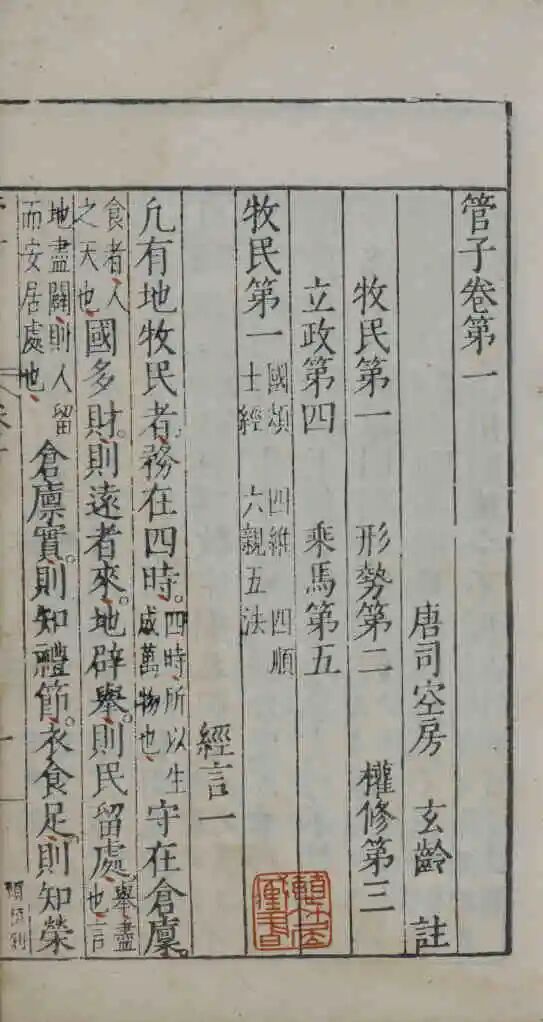 管子卷第一
唐司空房　玄齡　註
牧民第一　形勢第二　權修第三
立政第四　乘馬第五
牧民第一　國頌　四維　四順
士經　六親五法
經言一
凡有地牧民者。務在四時。四時所以生
成萬物也、守在倉廩。
食者、人
之天也、國多財。則遠者來。地辟舉。則民留處、舉盡
也、言
地盡闢、則人留
而安居處也、倉廩實。則知禮節。衣食足、則知榮